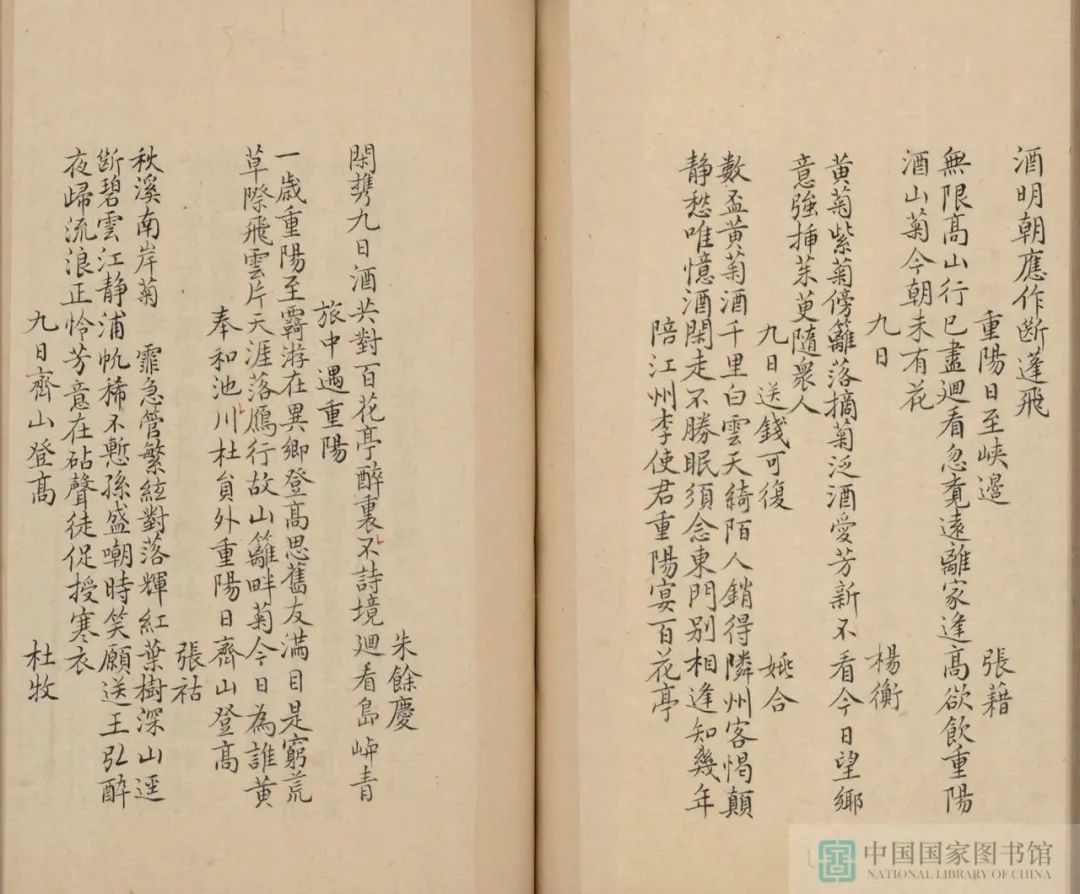 酒明朝應作斷蓬飛
重陽日至峽邊 張藉
無限高山行已盡迴看忽覓遠離家逢高欲飲重陽
酒山菊今朝未有花
九日 楊衡
黃菊紫菊傍籬落摘菊泛酒愛芳新不看今日望鄉
意強挿茱更隨衆人
九日送錢可復 姚合
數盃黃菊酒千里白雲天綺陌人銷得隣州客愒顛
静愁唯憶酒閑走不勝眠須念東門别相逢知幾年
陪江州李使君重陽宴百花亭
朱餘慶
閑攜九日酒共對百花亭醉裏不詩境迴看島嶼青
旅中遇重陽
一歲重陽至羇游在異鄉登高思舊友滿目是窮荒
草際飛雲片天涯落鴈行故山籬畔菊今日為誰黃
奉和池川杜員外重陽日齊山登高
張祜
秋溪南岸菊霏霏急管繁絃對落輝紅葉樹深山逕
斷碧雲江静浦帆稀不慙孫盛嘲時笑願送王弘醉
夜歸流浪正怜芳意在砧聲徒促授寒衣
九日齊山登高 杜牧
中国国家图书馆
NATIONAL LIBRARY OF CHINA